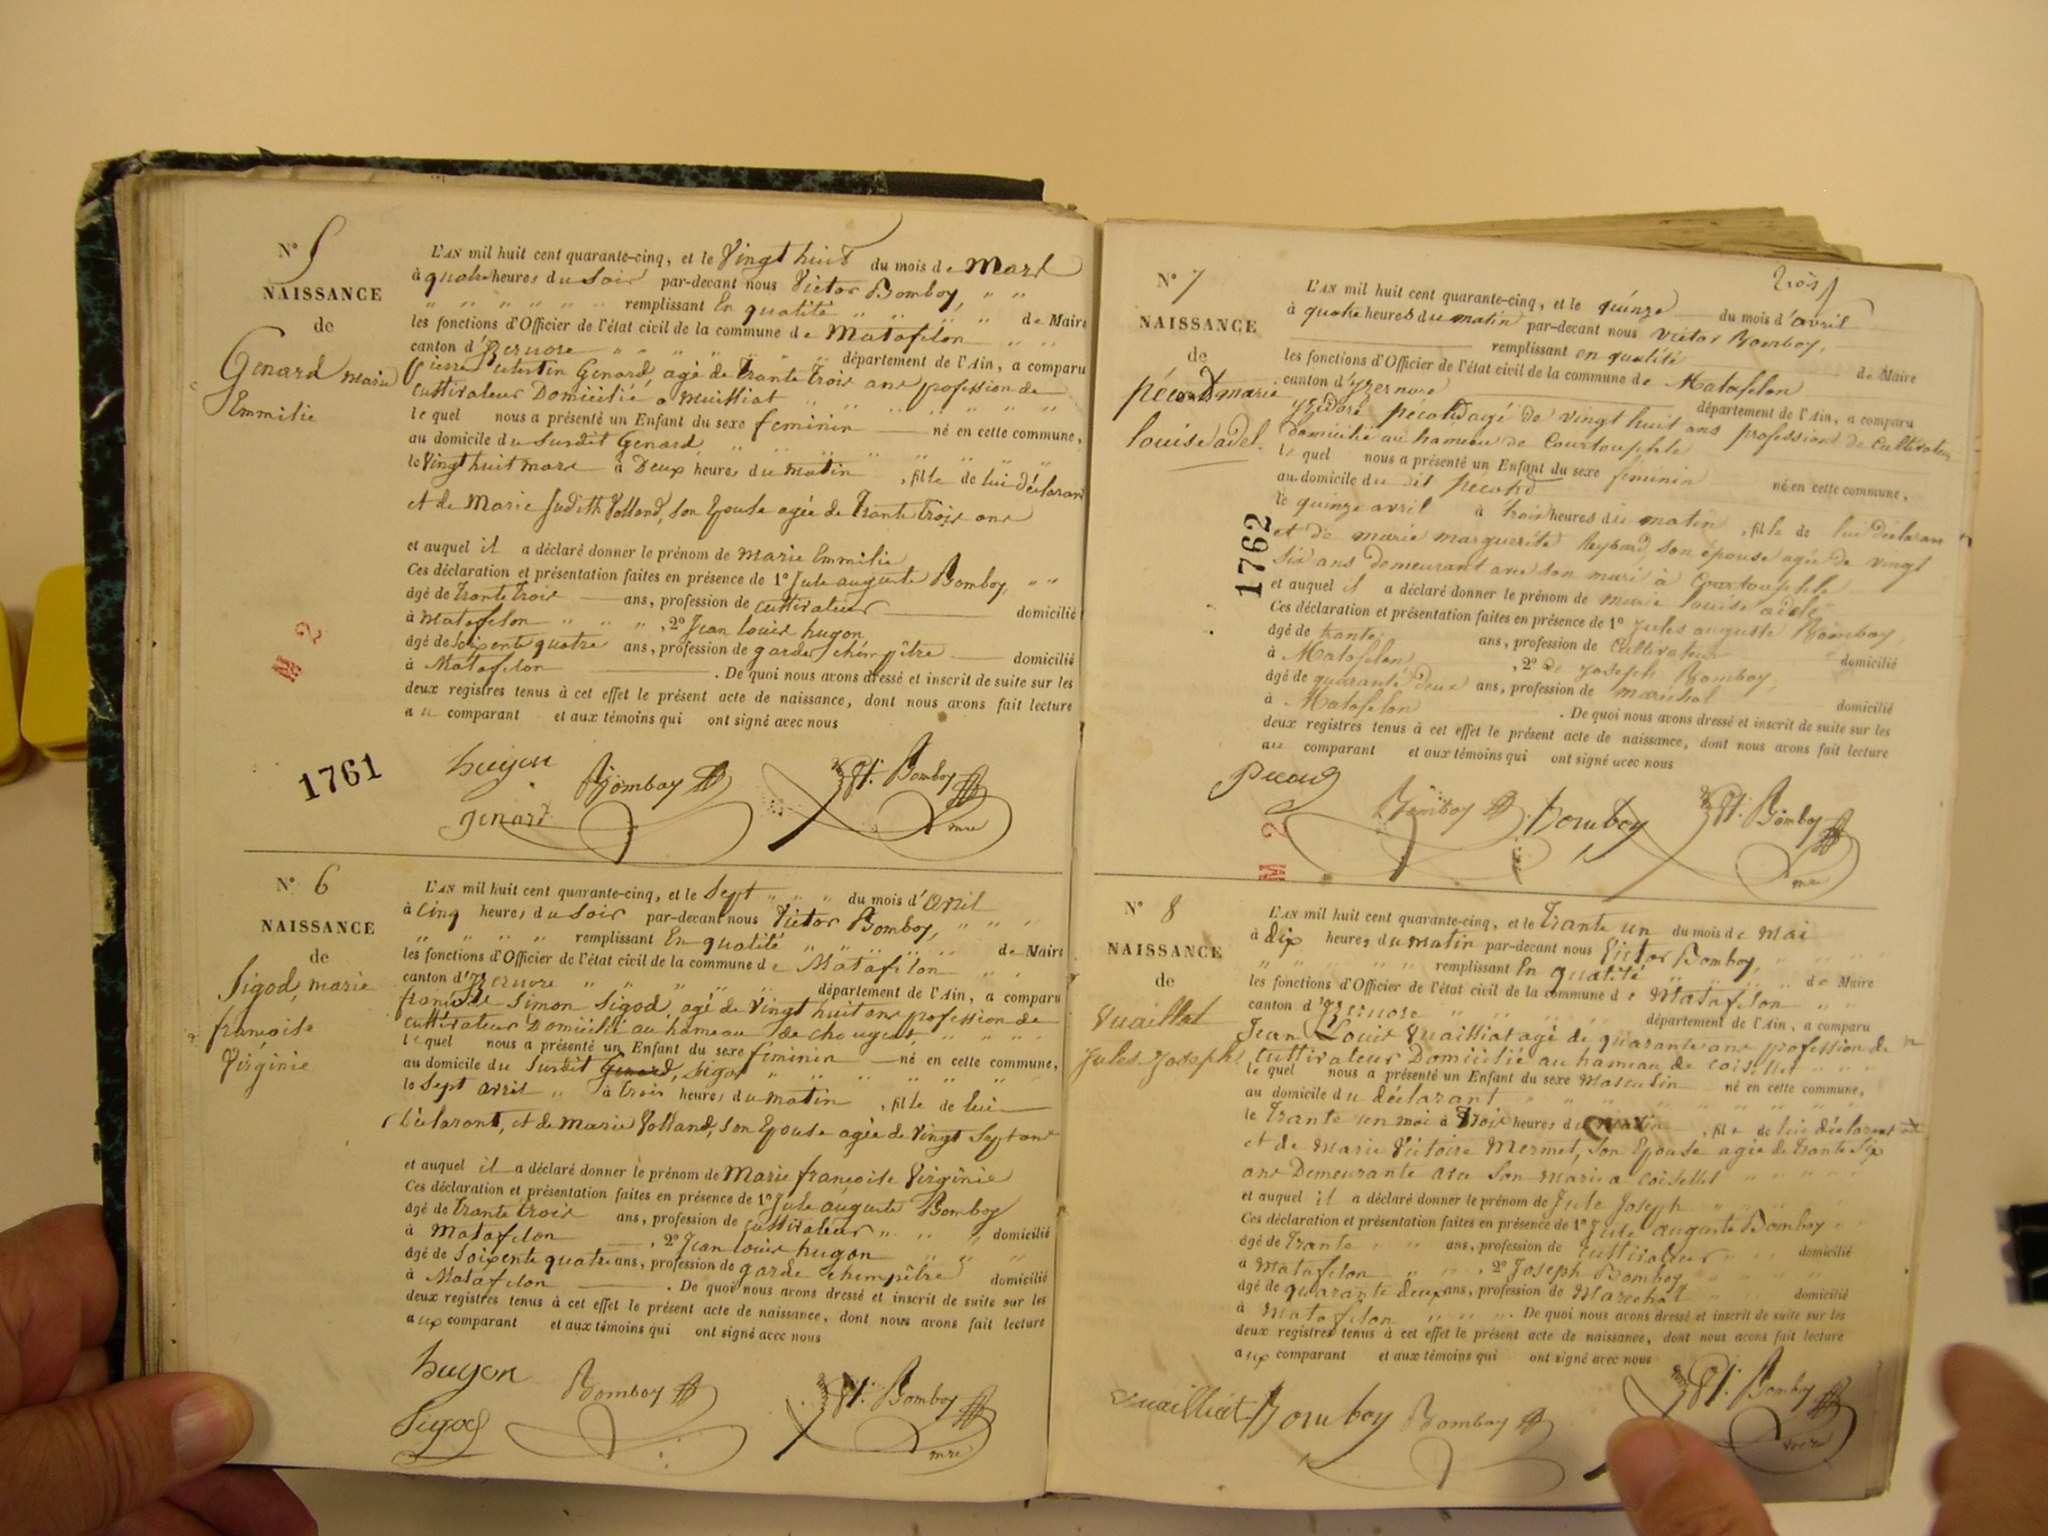 N° 5
NAISSANCE
de
Genard Marie
Emmilie
L'AN mil huit cent quarante-cinq, et le Vingt huit du mois de Mars
à quatre heures du Soir par-devant nous Victor Bomboy, " "
" " " " " " remplissant En qualité " " " " " de Maire
les fonctions d'Officier de l'état civil de la commune de Matafelon " "
canton d'Izernore " " " " " département de l'Ain, a comparu
pierre Celestin Genard, agé de trante trois ans profession de
cuttivateur Domicilié a
le quel nous a présenté un Enfant du sexe feminin né en cette commune,
au domicile du Susdit Genard, " " " " " " "
le Vingt huit mars à Deux heures du matin , fille de lui déclarant
et de Marie Judith Volland, Son Epouse agée de Trante Trois ans
et auquel il a déclaré donner le prénom de Marie Emmilie
Ces déclaration et présentation faites en présence de 1° Jule auguste Bomboy, " "
âgé de trante trois ans, profession de cuttivateur domicilié
à Matafelon " " " , 2° Jean louis hugon
âgé de Soixente quatre ans, profession de garde chempêtre domicilié
à Matafelon . De quoi nous avons dressé et inscrit de suite sur les
deux registres tenus à cet effet le présent acte de naissance, dont nous avons fait lecture
au comparant et aux témoins qui ont signé avec nous
hugon Bomboy Vt. Bomboy
genard mre
M 2
1761
N° 6
NAISSANCE
de
Sigod, marie
francoise
Virginie
L'AN mil huit cent quarante-cinq, et le Sept " " " du mois d'avril
à Cinq heures du Soir par-devant nous Victor Bomboy, " " "
" " " " remplissant En qualité " " " " " de Maire
les fonctions d'Officier de l'état civil de la commune de Matafelon " "
canton d'Izernore " " " " " département de l'Ain, a comparu
Simon Sigod, agé de Vingt huit ans profession de
cuttivateur Domicilié au hameau de chougeat, " " " "
le quel nous a présenté un Enfant du sexe féminin né en cette commune,
au domicile du Susdit Genard, Sigod " " " " " "
le Sept avril " à trois heures du matin , fille de lui
déclarant, et de Marie Volland, Son Epouse agée de Vingt Sept ans
et auquel il a déclaré donner le prénom de Marie francoise Virginie
Ces déclaration et présentation faites en présence de 1° Jule auguste Bomboy
âgé de trante trois ans, profession de cuttivateur " " " domicilié
à Matafelon , 2° Jean louis hugon
âgé de Soixente quatre ans, profession de garde chempêtre domicilié
à Matafelon . De quoi nous avons dressé et inscrit de suite sur les
deux registres tenus à cet effet le présent acte de naissance, dont nous avons fait lecture
aux comparant et aux témoins qui ont signé avec nous
hugon Bomboy Vt. Bomboy
Sigod mre
trois
N° 7
NAISSANCE
de
pécoud marie
louise adel.
L'AN mil huit cent quarante-cinq, et le quinze du mois d'avril
à quatre heures du matin par-devant nous Victor Bomboy,
remplissant en qualité de Maire
les fonctions d'Officier de l'état civil de la commune de Matafelon
canton d'Yzernore département de l'Ain, a comparu
pecoud agé de vingt huit ans profession de Cultivateur
domicilié au hameau de Courtouphle
le quel nous a présenté un Enfant du sexe feminin né en cette commune,
au domicile du dit pecoud
le quinze avril à trois heures du matin , fille de lui déclarant
et de marie marguerite Reybard, son épouse agée de vingt
six ans demeurant avec son mari à Courtouphle
et auquel il a déclaré donner le prénom de marie louise adele
Ces déclaration et présentation faites en présence de 1° Jules auguste Bomboy,
âgé de trante ans, profession de Cultivateur domicilié
à Matafelon , 2° de Joseph Bomboy,
âgé de quarante deux ans, profession de maréchal domicilié
à Matafelon . De quoi nous avons dressé et inscrit de suite sur les
deux registres tenus à cet effet le présent acte de naissance, dont nous avons fait lecture
au comparant et aux témoins qui ont signé avec nous
Pecoud Bomboy Bomboy Vt. Bomboy
mre
1762
M 2
N° 8
NAISSANCE
de
Vuaillat
Jules Joseph
L'AN mil huit cent quarante-cinq, et le Trante un du mois de Mai
à dix heures du matin par-devant nous Victor Bomboy, " " " "
" " " " " " remplissant En qualité " " " " de Maire
les fonctions d'Officier de l'état civil de la commune de Matafelon " "
canton d'Izernore " " " " " département de l'Ain, a comparu
Jean Louis Vuailliat agé de quarante ans profession de
cuttivateur Domicilié au hameau de coisellet " " "
le quel nous a présenté un Enfant du sexe Masculin né en cette commune,
au domicile du déclarant " " " " " " " "
le Trante un mai à Trois heures du matin , fils de lui déclarant
et de Marie Victoire Mermet, Son Epouse agée de trante Six
ans Demeurante avec Son Mari a coisellet " " " "
et auquel il a déclaré donner le prénom de Jule Joseph " " "
Ces déclaration et présentation faites en présence de 1° Jule auguste Bomboy " "
âgé de Trante " " ans, profession de cuttivateur " " " domicilié
à Matafelon " " " , 2° Joseph Bomboy " " "
âgé de quarante deux ans, profession de Marechal " " domicilié
à Matafelon " " " . De quoi nous avons dressé et inscrit de suite sur les
deux registres tenus à cet effet le présent acte de naissance, dont nous avons fait lecture
aux comparant et aux témoins qui ont signé avec nous
Vuailliat Bomboy Bomboy Vt. Bomboy
mre